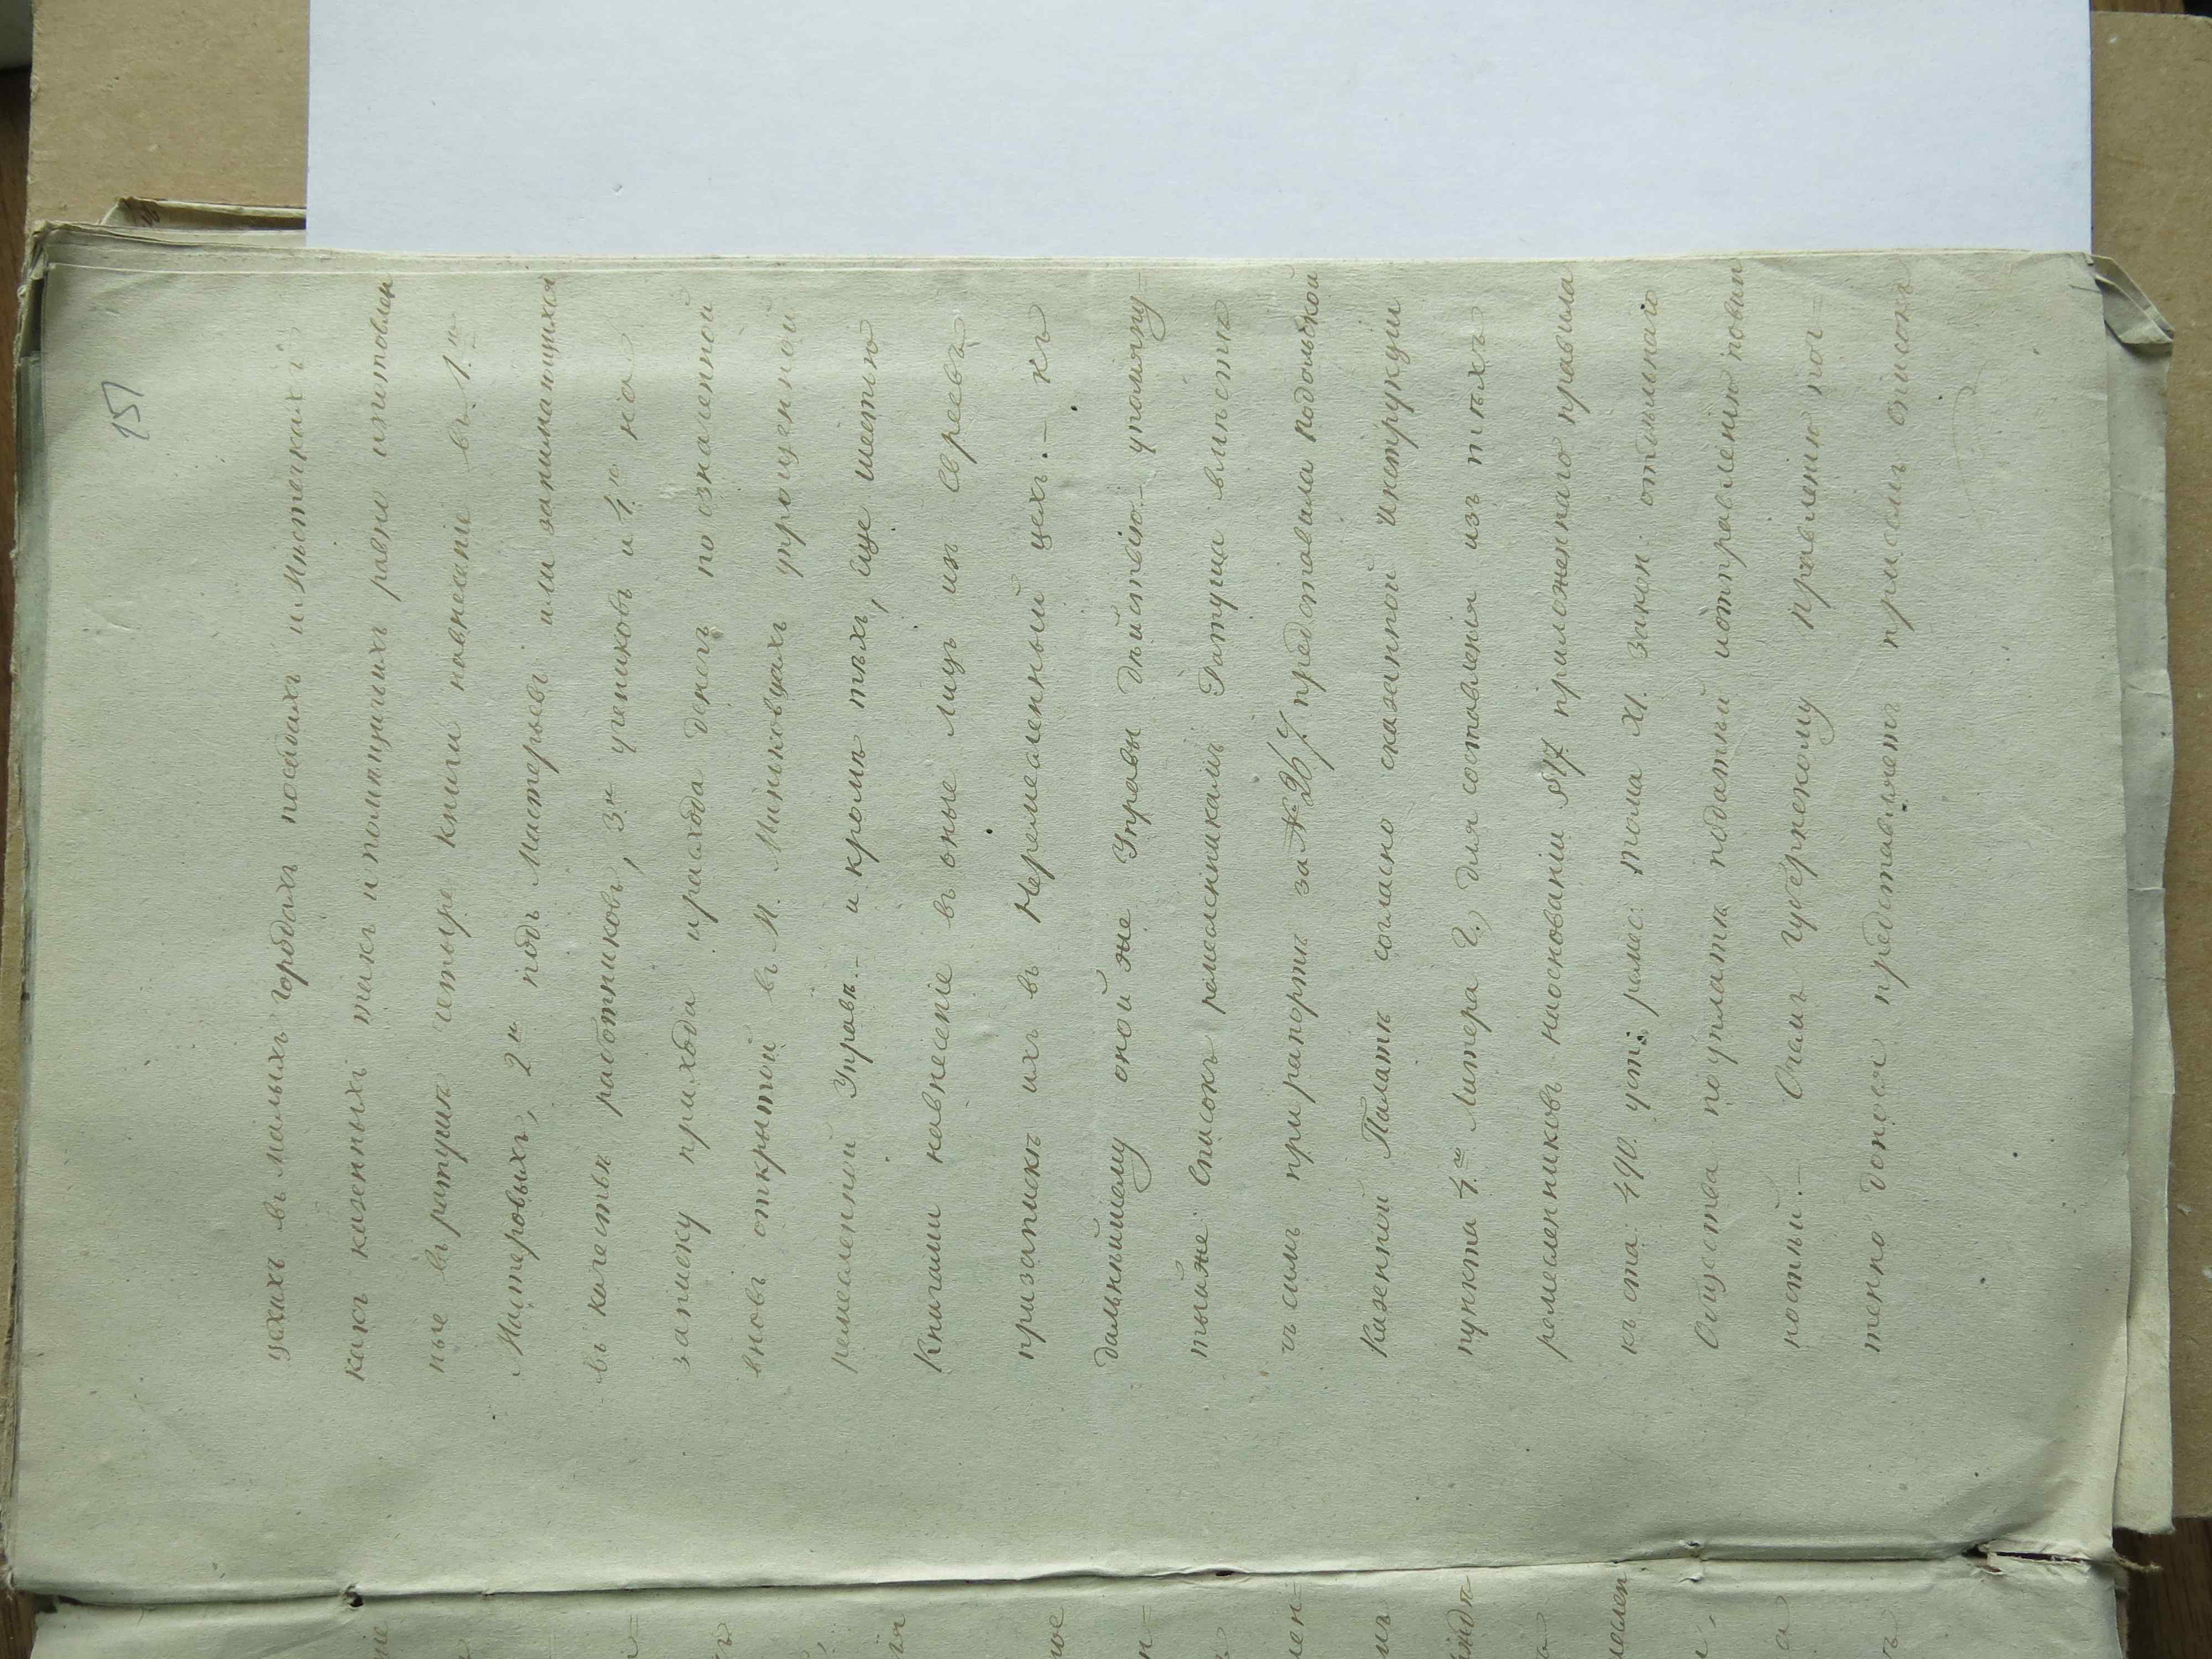 151
щихъ въ малыхъ городахъ посадахъ и Мистечкахъ
какъ казенныхъ такъ и помѣщичихъ равно изготовлен
ные въ ратушѣ четыре книги на внесаніе въ 1ю
Мастеровыхъ, 2ю подъ Мастерьевъ или занимающихся
въ качествѣ работниковъ, 3ю учениковъ и 4ю на
записку прихода и расхода денегъ по означенной
вновь открытой въ М. Миньковцахъ упрощенной
ремесленной Управѣ.- и кромѣ тѣхъ, еще шестью
Книгами на внесеніе въ оные лицъ изъ Евреевъ
при запискѣ ихъ въ Неремесленный цехъ.- къ
дальнѣйшему оной же Управы дѣйствію- упомяну=
тыйже Списокъ ремесленникамъ Ратуша вмѣстѣ
съ симъ при рапортѣ за № 267. представила подольской
Казенной Палатѣ согласно сказанной инструкціи
пункта 4го Литера Г.) для составленія изъ тѣхъ
ремесленниковъ на основаніи §17 приложеннаго правила
къ ста: 490. уст: ремес: тома XI. закон: отдѣльнаго
Общества по уплатѣ податей и отправленію повин
ностей.- О чемъ губернскому правленію поч=
тенно донося представляетъ при семъ списокъ